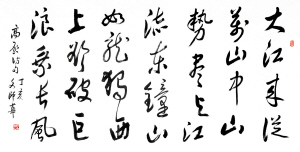 大江来從
萬山中山
勢盡与江
流東鐘山
如龍獨西
上欲破巨
浪乘長風
高啟詩句
丁亥